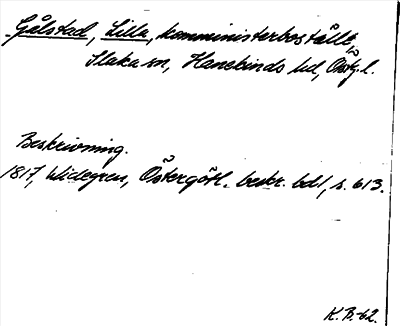 Gålstad, Lilla, komministerboställe,
Slaka sn, Hanekinds hd, Östg.l.
Beskrivning.
1817, Widegren, Östergötl. beskr. bd 1, s. 613.
K.B.-62.